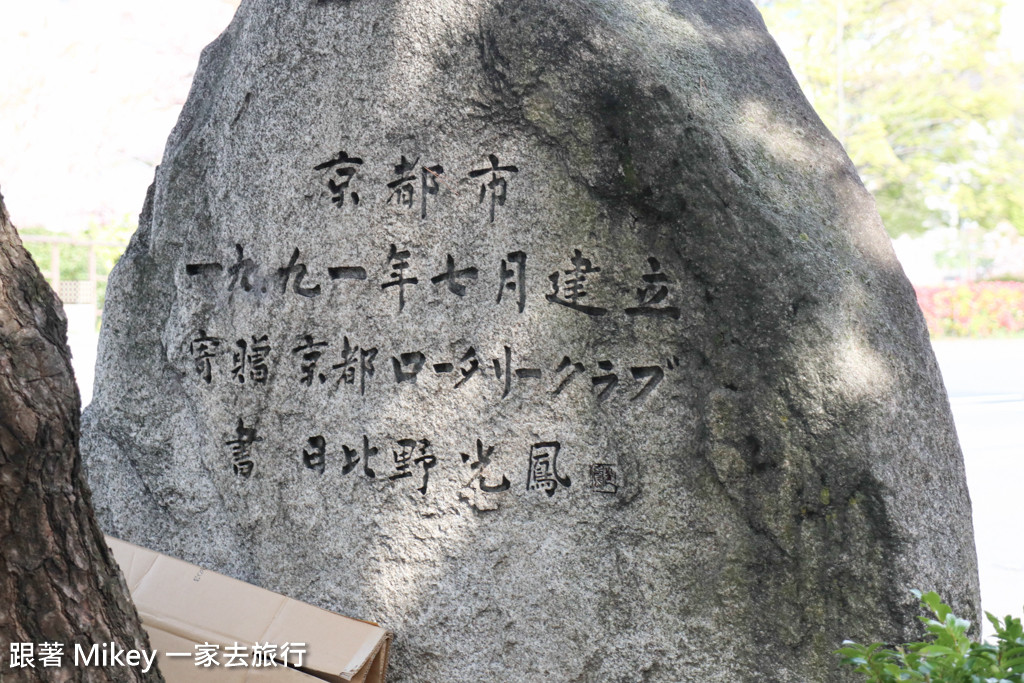 京都市
一九九一年七月建立
寄贈 京都ロータリークラブ
書 日比野光鳳
跟著 Mikey 一家去旅行